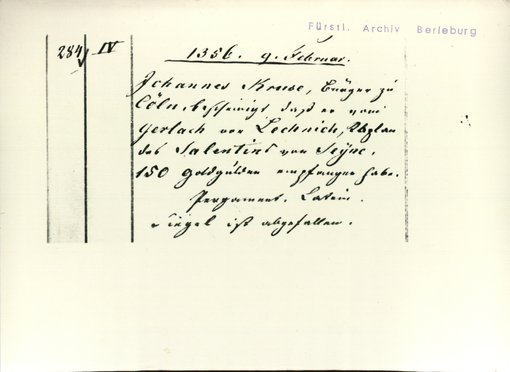 Fürstl. Archiv Berleburg
284 IV
1356. 9. Februar.
Johannes Kruse, Bürger zu
Cöln, bescheinigt daß er vom
Gerlach von Lechnich,
des Salentins von Seyne,
150 Goldgülden empfangen habe.
Pergament. Latein.
Siegel ist abgefallen.